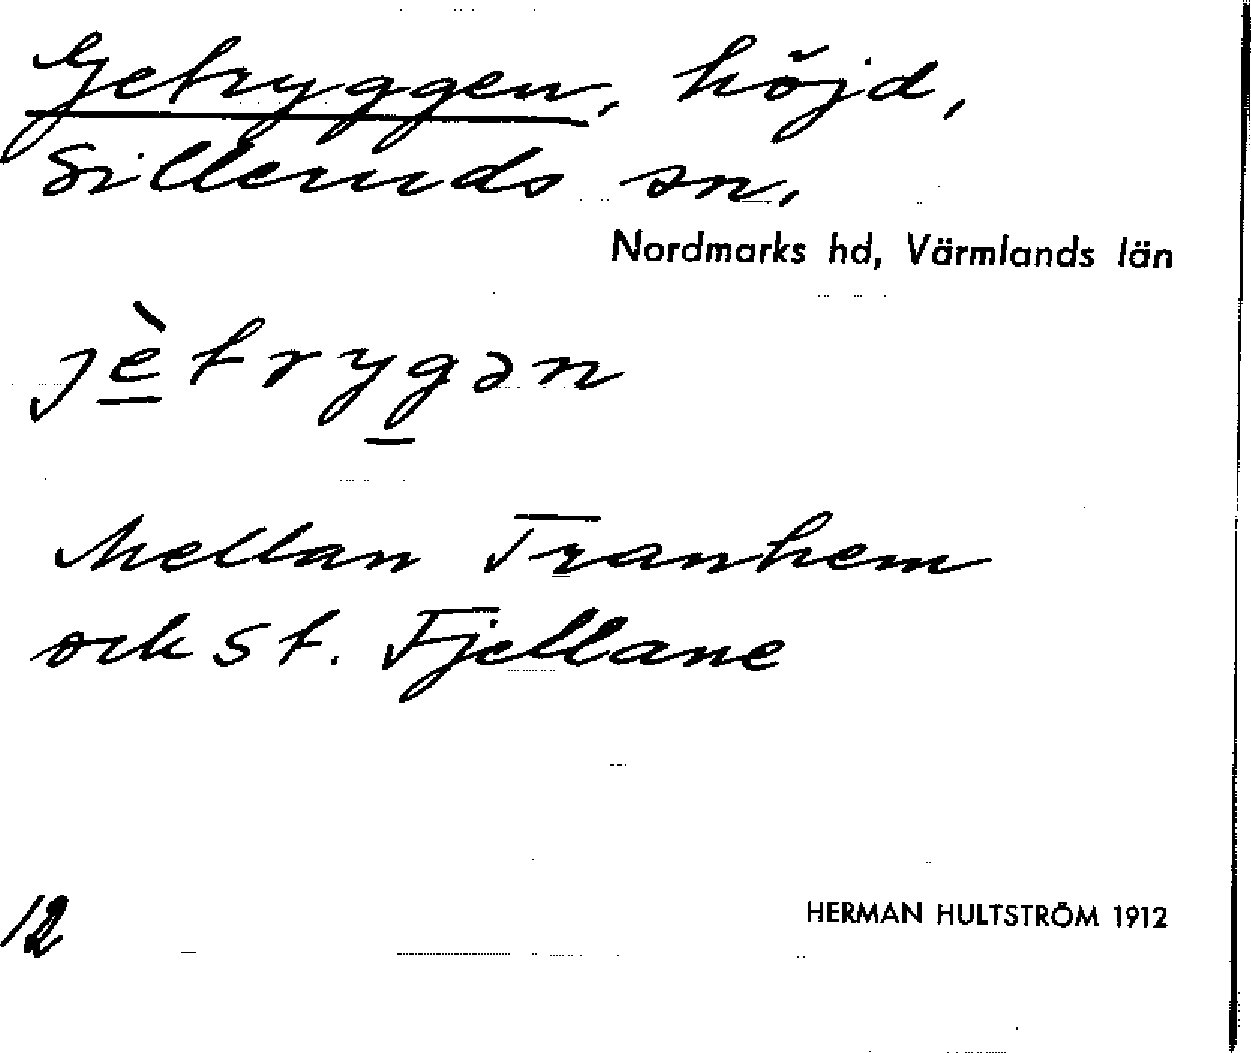 Getryggen, höjd,
Silleruds sn,
Nordmarks hd, Värmlands län
jètrygən
Mellan Tranhem
och St. Fjellane
12
HERMAN HULTSTRÖM 1912